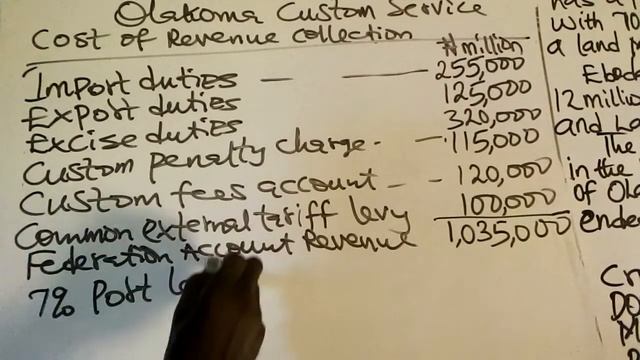 Olakoma Custom Service
Cost of Revenue collection
₦million
Import duties — — 255,000
Export duties 125,000
Excise duties 320,000
Custom penalty charge. — 115,000
Custom fees account - - 120,000
Common external tariff levy 100,000
Federation Account Revenue 1,035,000
7% Port
with 70
a land
Ebed
12 millio
and La
The
in the
of Ol
ende
Cr
DO
M